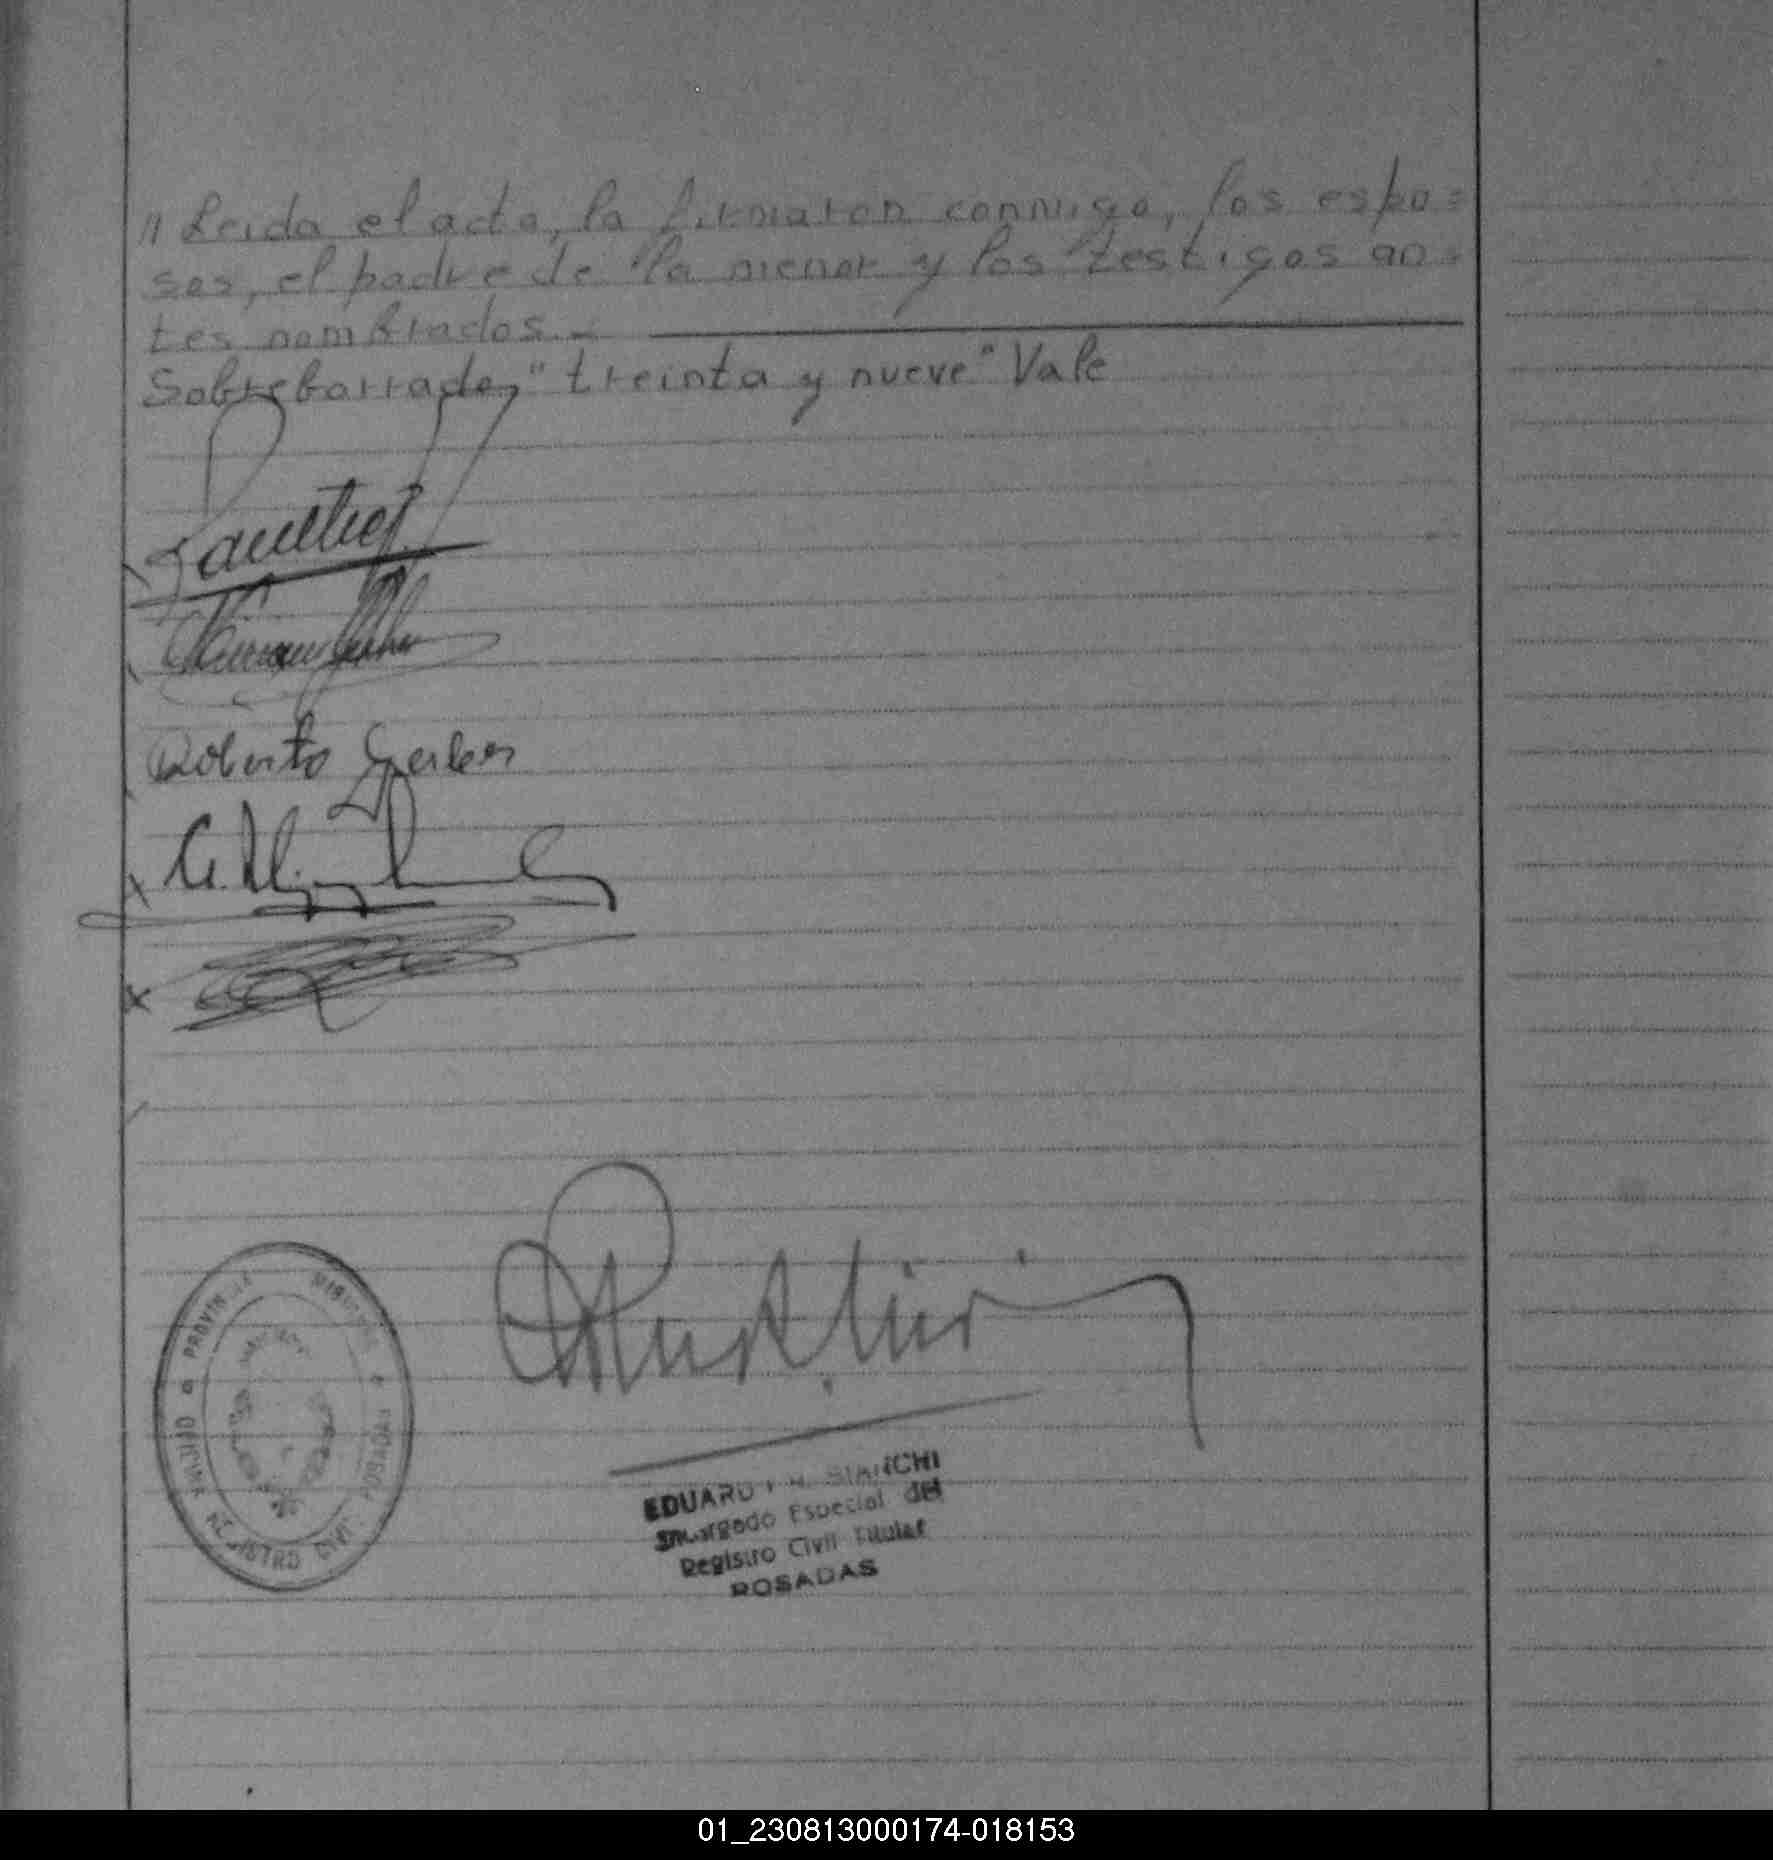 // Leida el acta, la firmaron conmigo, los espo=
sos, el padre de la menor y los testigos an=
tes nombrados.-
Sobreborrado, "treinta y nueve" Vale
Roberto Gerber
PROVINCIA MISIONES
OFICINA REGISTRO CIVIL POSADAS
EDUARDO H. BIANCHI
Encargado Especial del
Registro Civil Titular
POSADAS
01_230813000174-018153